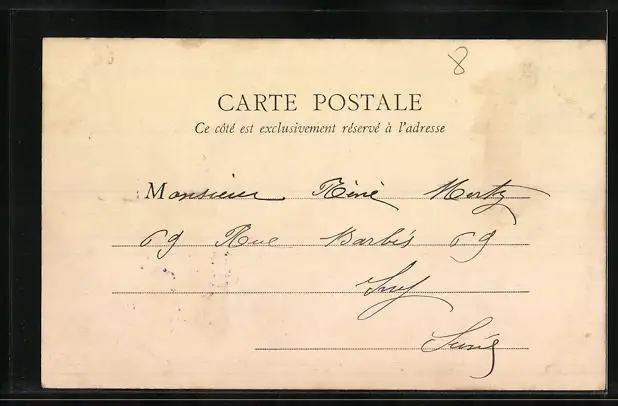 8
CARTE POSTALE
Ce côté est exclusivement réservé à l'adresse
Monsieur Réné Mertz
69 Rue Barbés 69
Ivry
Seine